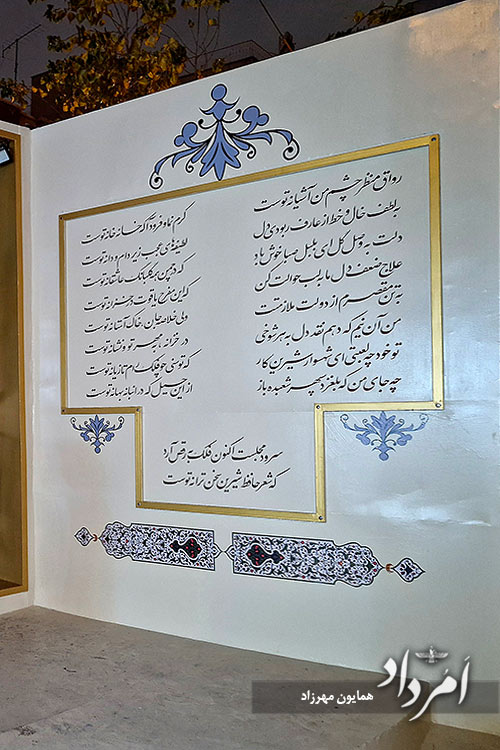 رواق منظر چشم من آشیانه توست کرم نما و فرود آ که خانه خانه توست
بلطف خال و خط از عارفان ربودی دل لطیفه‌های عجب زیر دام و دانه توست
دلت به وصل گل ای بلبل صبا خوش باد که در چمن همه گلبانگ عاشقانه توست
علاج ضعف دل ما به لب حوالت کن که این مفرح یاقوت در خزانه توست
به تن مقصرم از دولت ملازمتت ولی خلاصه جان خاک آستانه توست
من آن نیم که دهم نقد دل به هر شوخی در خزانه به مهر تو و نشانه توست
تو خود چه لعبتی ای شهسوار شیرین کار که توسنی چو فلک رام تازیانه توست
چه جای من که بلغزد سپهر شعبده باز از این حیل که در انبانه بهانه توست
سرود مجلست اکنون فلک به رقص آرد
که شعر حافظ شیرین سخن ترانه توست
اَمُرداد
همایون مهرزاد